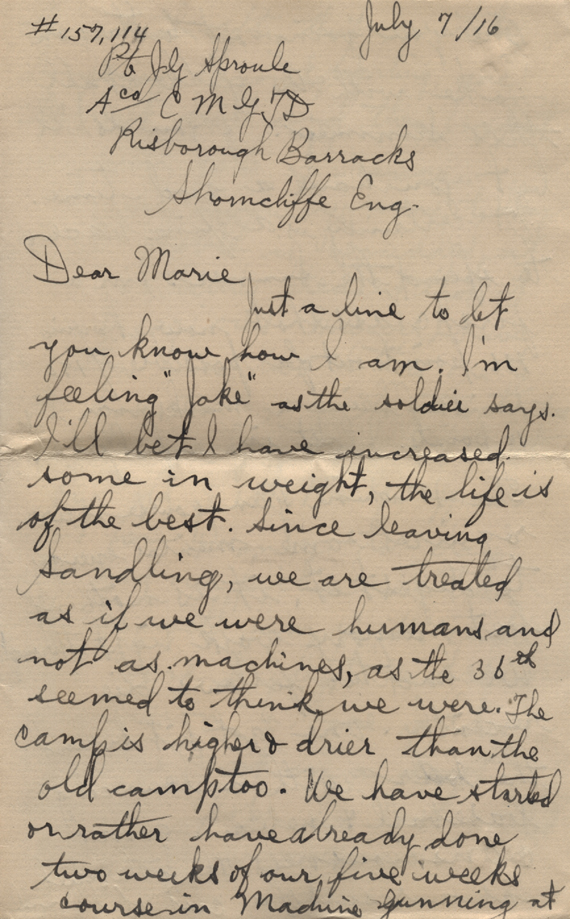 July 7/16
#157,114
Pte J G Sproule
A Co C M G T D
Risborough Barracks
Shorncliffe Eng.
Dear Marie
Just a line to let
you know how I am. I'm
feeling "Jake" as the soldier says.
I'll bet I have increased
some in weight, the life is
of the best. Since leaving
Sandling, we are treated
as if we were humans and
not as machines, as the 36th
seemed to think we were. The
camp is higher & drier than the
old camp too. We have started
or rather have already done
two weeks of our five weeks
course in Machine gunning at